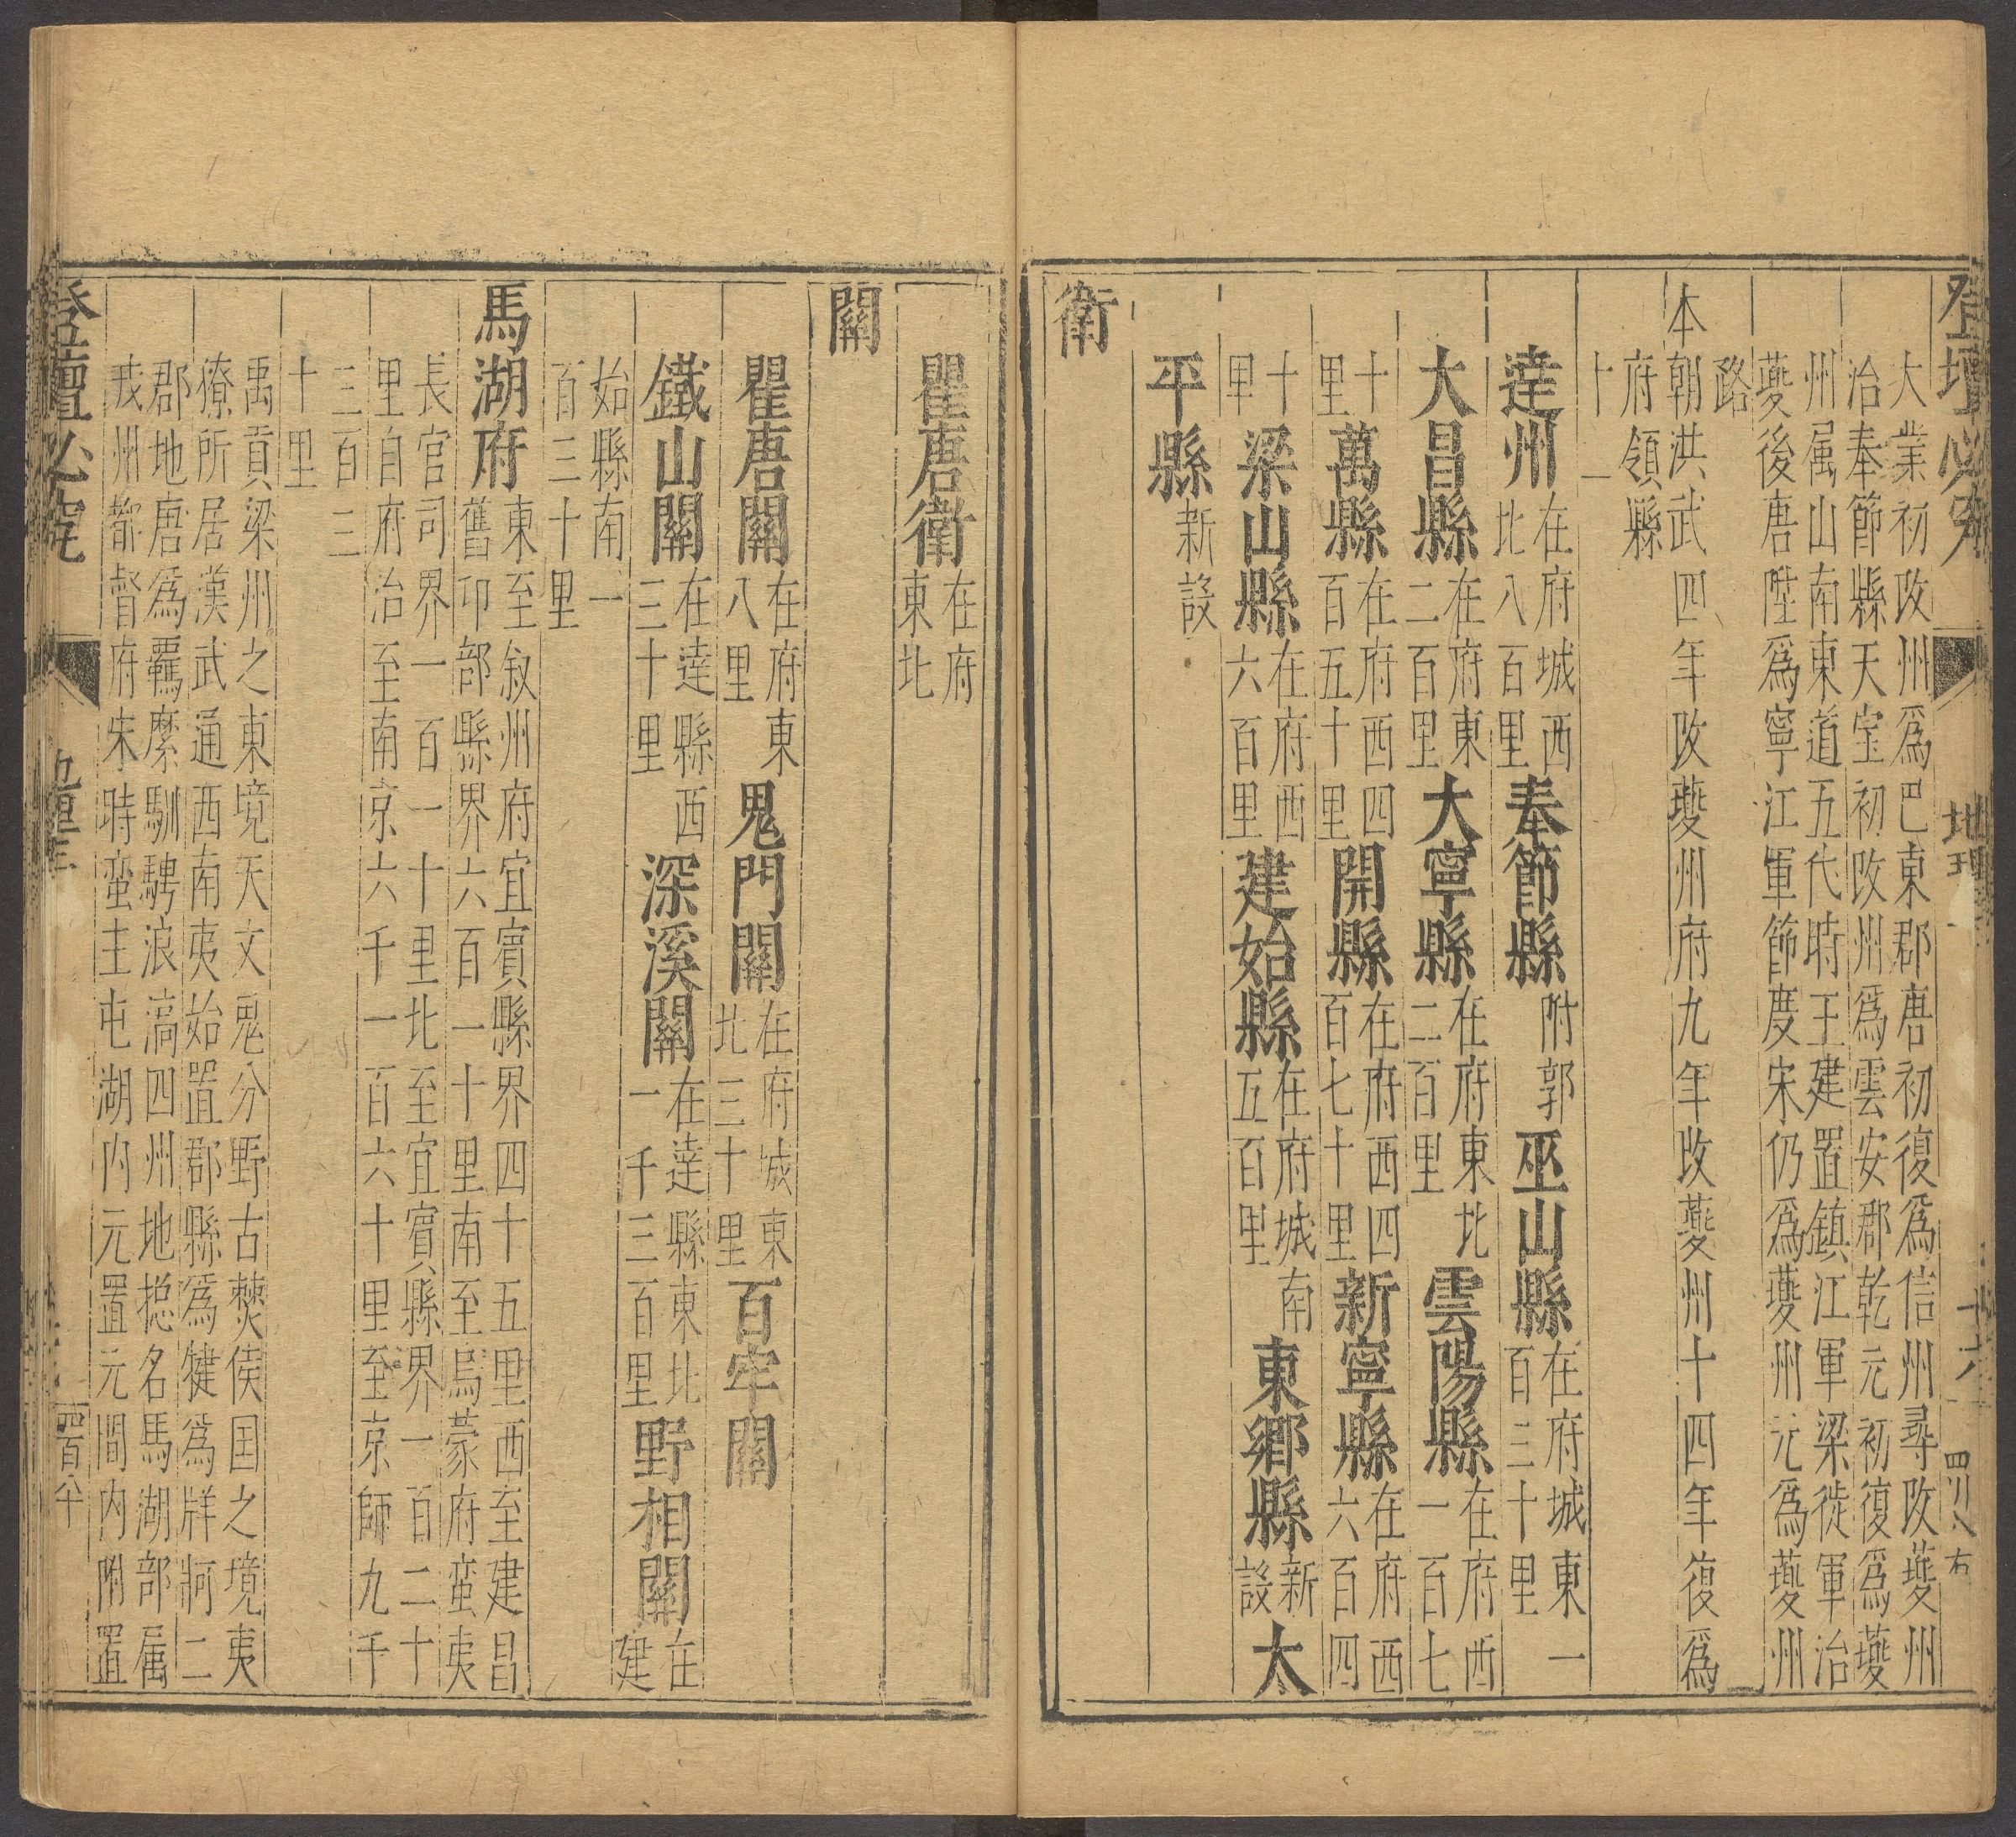 登壇必究
地理
十六
四川
大業初改州爲巴東郡唐初復爲信州尋改䕫州
治奉節縣天宝初改州爲雲安郡乾元初復爲䕫
州属山南東道五代時王建置鎮江軍梁徙軍治
䕫後唐陞爲寧江軍節度宋仍爲䕫州元爲䕫州
路
本朝洪武四年改䕫州府九年改䕫州十四年復爲
府領縣
十一
達州在府城西北八百里奉節縣附郭巫山縣在府城東一百三十里
大昌縣在府東二百里大寧縣在府東北二百里雲陽縣在府西一百七
十里萬縣在府西四百五十里開縣在府西四百七十里新寧縣在府西六百四
十里梁山縣在府西六百里建始縣在府城南五百里東鄉縣新設太
平縣新設
衛
瞿唐衛在府東北
關
瞿唐關在府東八里鬼門關在府城東北三十里百牢關
鐵山關在達縣西三十里深溪關在達縣東北一千三百里野相關在建
始縣南一百三十里
馬湖府東至叙州府宜賓縣界四十五里西至建昌
舊卭部縣界六百一十里南至烏蒙府蛮夷
長官司界一百一十里北至宜賓縣界一百二十
里自府治至南京六千一百六十里至京師九千
三百三
十里
禹貢梁州之東境天文䰟分野古僰侯国之境夷
獠所居漢武通西南夷始置郡縣爲犍爲牂牁二
郡地唐爲羈縻馴騁浪滈四州地捴名馬湖部属
戎州都督府宋時蛮主屯湖内元置元間内附置
登壇必究